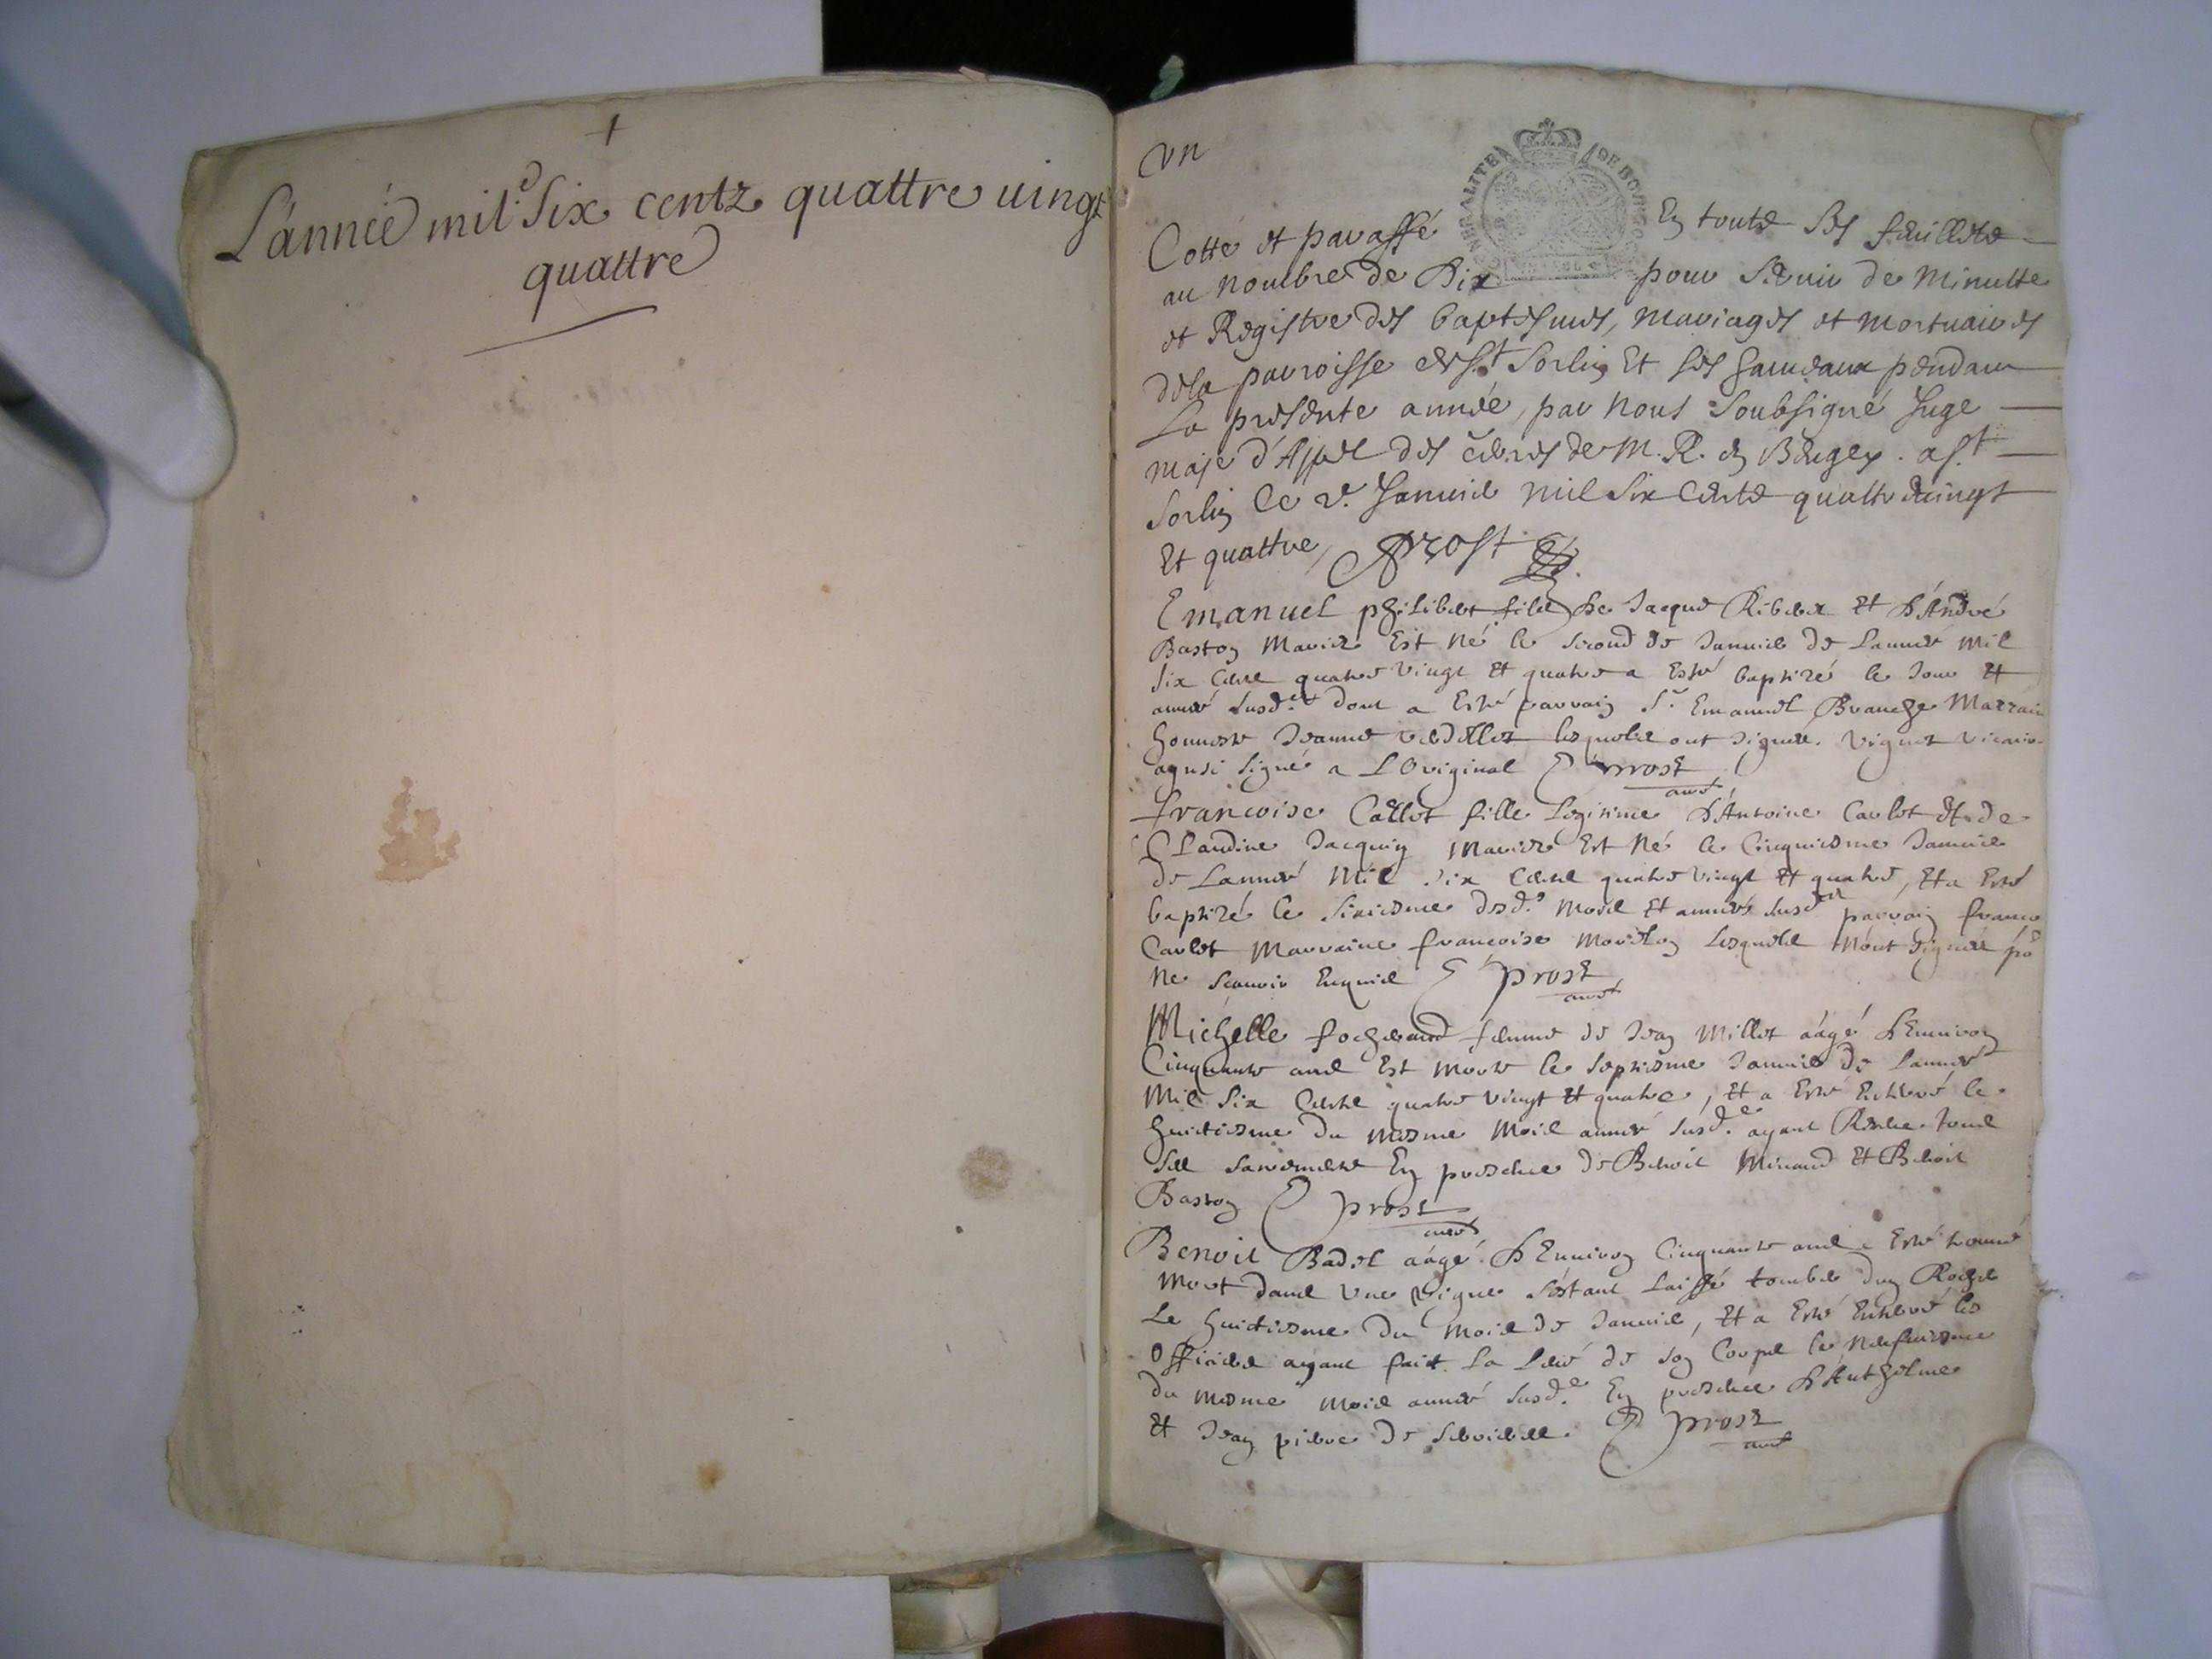 +
L'année mil Six centz quattre uingt
quattre
vn
GENERALITE DE BOURGOGNE
Cotté et paraffé En touts ses feuillets
au nombre de Dix pour seruir de Minutte
et Registre des baptesmes, mariages et mortuaires
dela parroisse de St. Sorlin Et ses hameaux pendant
La presente année, par nous soubsigné Juge
maje d'Appel des de M. R. en Beugey. a St.
Sorlin le 2e. Januier mil six cents quattre uingt
Et quattre, Prost
Emanuel philibert fils de Jacque Ribier et d'André
Baston Mariez Est né le second de Januier de Lannee mil
six cens quatre vingt et quatre a Esté baptizé le Jour et
année susd.e dont a Esté parrain Sr. Emanuel Branche Marraine
honneste Jeanne lesquels ont signez. viguet vicaire
aynsi signé a L'Original Prost
curé
francoise Carlot fille Legitime d'Antoine Carlot et de
Claudine Jacquin Mariez Est Né le Cinquiesme Januier
de Lannée Mil six cens quatre vingt et quatre, Et a Esté
baptizé le sixiesme dud. Mois Et année susd. parrain franco
Carlot Marraine francoise lesquels n'ont signez po
ne scauoir Enquis Prost
curé
Michelle femme de Jean Millot aâgé d'Enuiron
Cinquante ans Est morte le septiesme Januier de Lannée
Mil six cens quatre vingt et quatre, Et a Esté Enterré le
huictiesme du mesme Mois année susd.e ayant Receu tous
ses sacrements En presence de Benoit Minand Et Benoit
Baston Prost
curé
Benoit Badel aâgé d'Enuiron Cinquante ans a Esté trouué
mort dans vne vigne s'estant laissé tomber d'un Rocher
Le huictiesme du Mois de Januier, Et a Esté Enterré les
Officiers ayant fait la Leué de son Corps le neufuiesme
du mesme Mois année susd.e En presence d'Anthelme
Et Jean pierre de Prost
curé